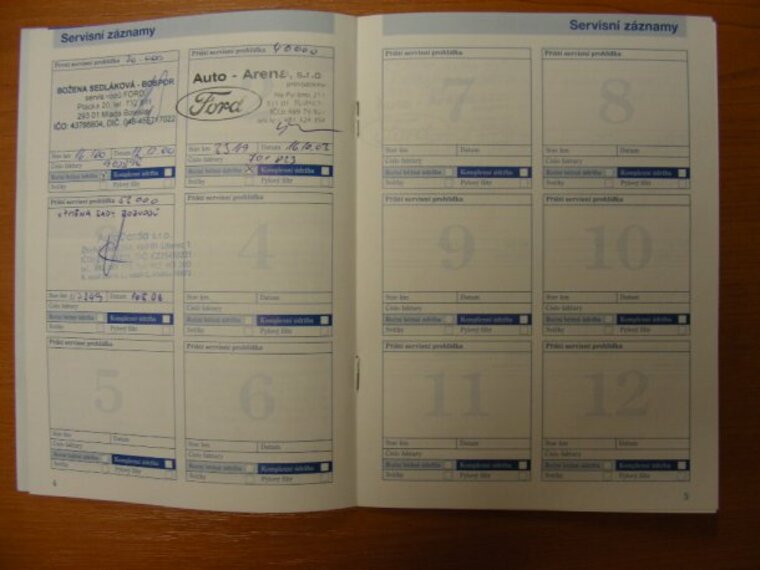 Servisní záznamy
První servisní prohlídka 20.000
BOŽENA SEDLÁKOVÁ - BOSPOR
servis vozů FORD
293 01 Mladá Boleslav
Stav km Datum
Číslo faktury
Roční běžná údržba Komplexní údržba
Svíčky Pylový filtr
Příští servisní prohlídka 40000
Auto - Arena, s.r.o.
Ford
Stav km Datum 16.10.02
Číslo faktury
Roční běžná údržba X Komplexní údržba
Svíčky Pylový filtr
Příští servisní prohlídka
VÝMĚNA SADY ROZVODŮ
s.r.o.
Stav km Datum
Číslo faktury
Roční běžná údržba Komplexní údržba
Svíčky Pylový filtr
Příští servisní prohlídka
4
Stav km Datum
Číslo faktury
Roční běžná údržba Komplexní údržba
Svíčky Pylový filtr
Příští servisní prohlídka
5
Stav km Datum
Číslo faktury
Roční běžná údržba Komplexní údržba
Svíčky Pylový filtr
Příští servisní prohlídka
6
Stav km Datum
Číslo faktury
Roční běžná údržba Komplexní údržba
Svíčky Pylový filtr
4
Servisní záznamy
Příští servisní prohlídka
7
Stav km Datum
Číslo faktury
Roční běžná údržba Komplexní údržba
Svíčky Pylový filtr
Příští servisní prohlídka
8
Stav km Datum
Číslo faktury
Roční běžná údržba Komplexní údržba
Svíčky Pylový filtr
Příští servisní prohlídka
9
Stav km Datum
Číslo faktury
Roční běžná údržba Komplexní údržba
Svíčky Pylový filtr
Příští servisní prohlídka
10
Stav km Datum
Číslo faktury
Roční běžná údržba Komplexní údržba
Svíčky Pylový filtr
Příští servisní prohlídka
11
Stav km Datum
Číslo faktury
Roční běžná údržba Komplexní údržba
Svíčky Pylový filtr
Příští servisní prohlídka
12
Stav km Datum
Číslo faktury
Roční běžná údržba Komplexní údržba
Svíčky Pylový filtr
5